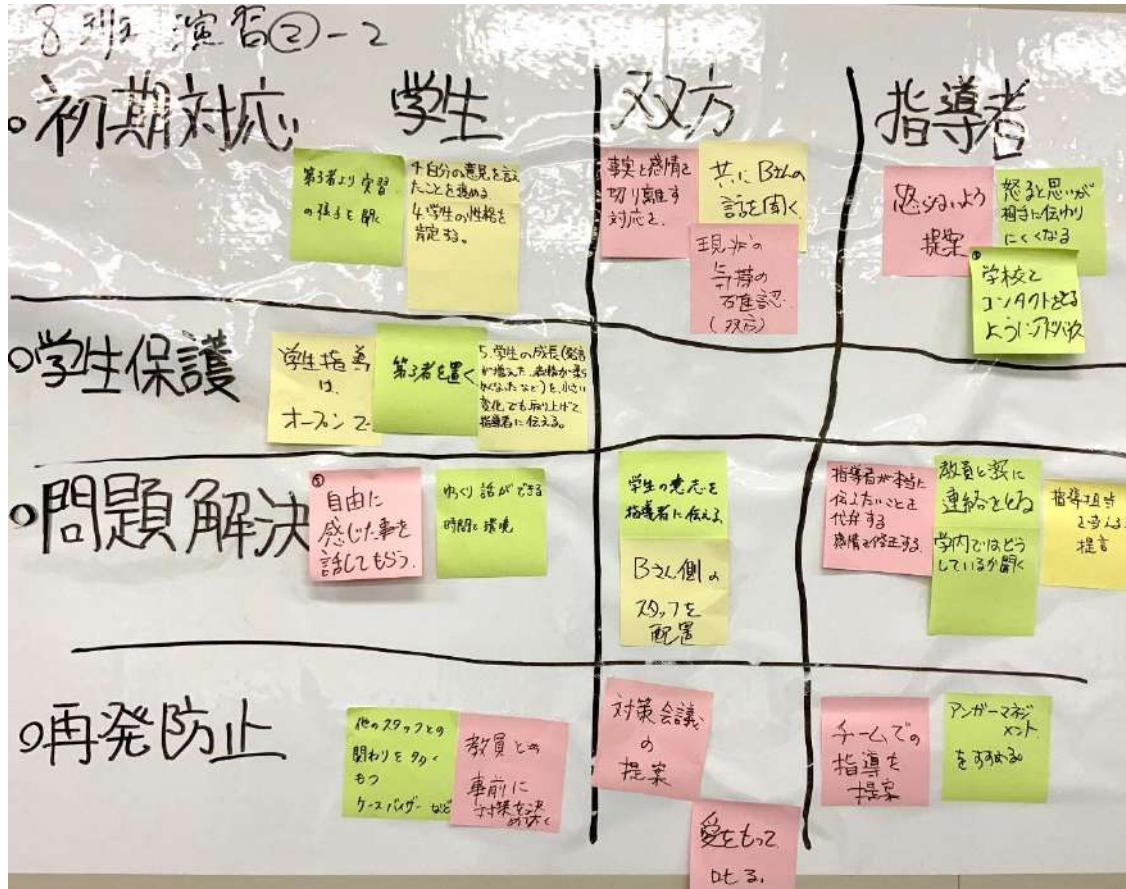 8班 演習②-2
○初期対応
学生
双方
指導者
第3者より実習
の様子を聞く
4.自分の意見を言え
たことを褒める
4.学生の性格を
肯定する。
事実と感情を
切り離す
対応を、
共にBさんの
話を聞く
現状の
確認
(双方)
怒らないよう
提案
怒ると思いが
相手に伝わり
にくくなる
学校と
コンタクトをとる
ようにアドバイス
○学生保護
学生指導
は、
オープンで
第3者を置く
5.学生の成長(発言
が増えた、表情が柔ら
かくなったなど)を、小さい
変化でも取り上げて
指導者に伝える。
○問題解決
自由に
感じた事を
話してもらう。
ゆっくり話ができる
時間と環境
学生の意志を
指導者に伝える
Bさん側の
スタッフを
配置
指導者が本当に
伝えたいことを
代弁する
感情を修正する。
教員と密に
連絡をとる
学内ではどう
しているか聞く
指導担当
提言
○再発防止
他のスタッフとの
関わりを多く
もつ
ケースバイザーなど
教員との
事前に
対策を決
めておく
対策会議
の
提案
愛をもって
チームでの
指導を
提案
アンガーマネジ
メント
をすすめる